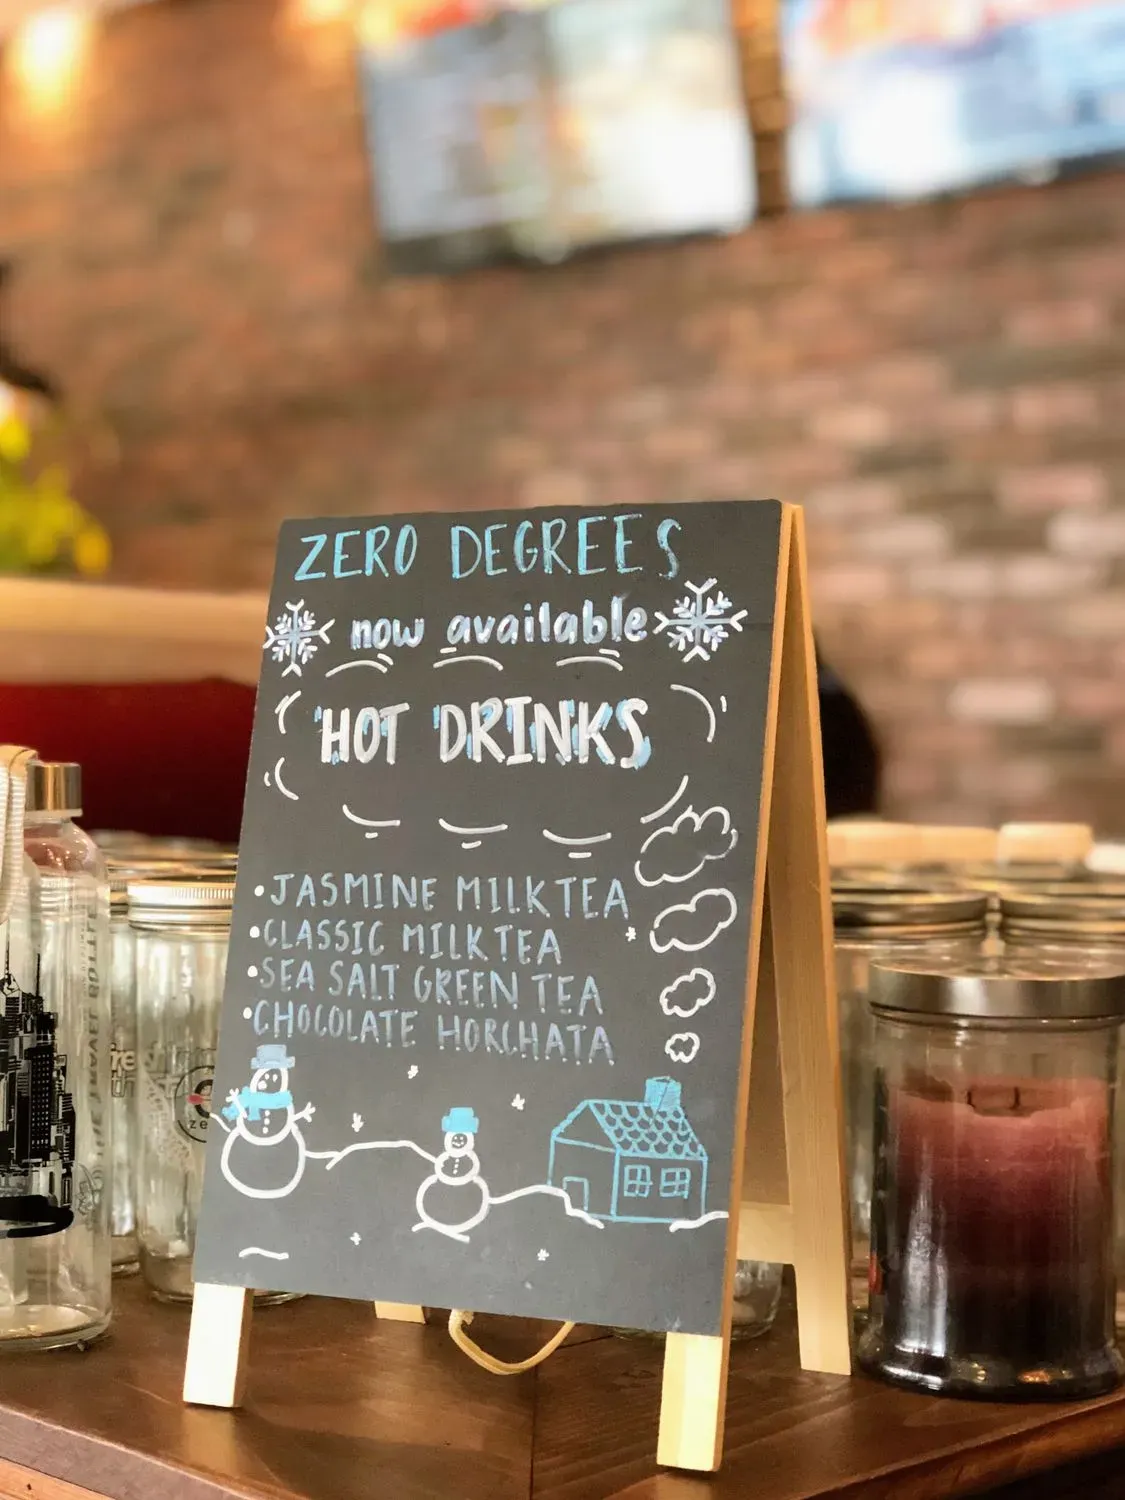 ZERO DEGREES
now available
HOT DRINKS
• JASMINE MILK TEA
• CLASSIC MILK TEA
• SEA SALT GREEN TEA
• CHOCOLATE HORCHATA